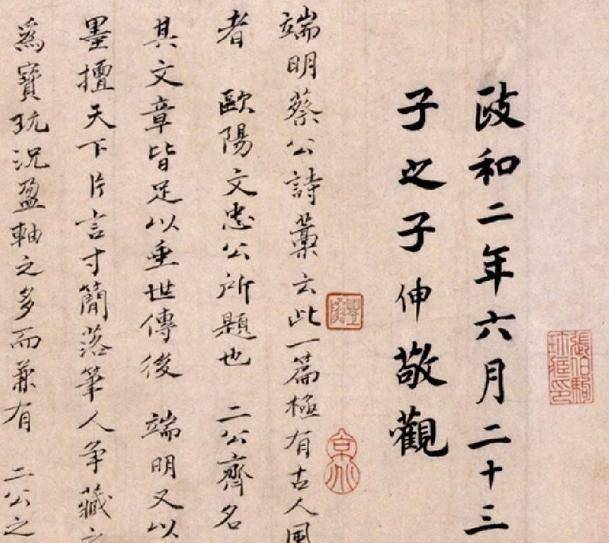 張伯駒
珍藏印
政和二年六月二十三
子之子伸敬觀
端明蔡公詩藁云此一篇極有古人風
者 歐陽文忠公所題也 二公齊名
其文章皆足以垂世傳後 端明又以
墨擅天下片言寸簡落筆人争藏之
為寶玩況盈軸之多而兼有 二公之